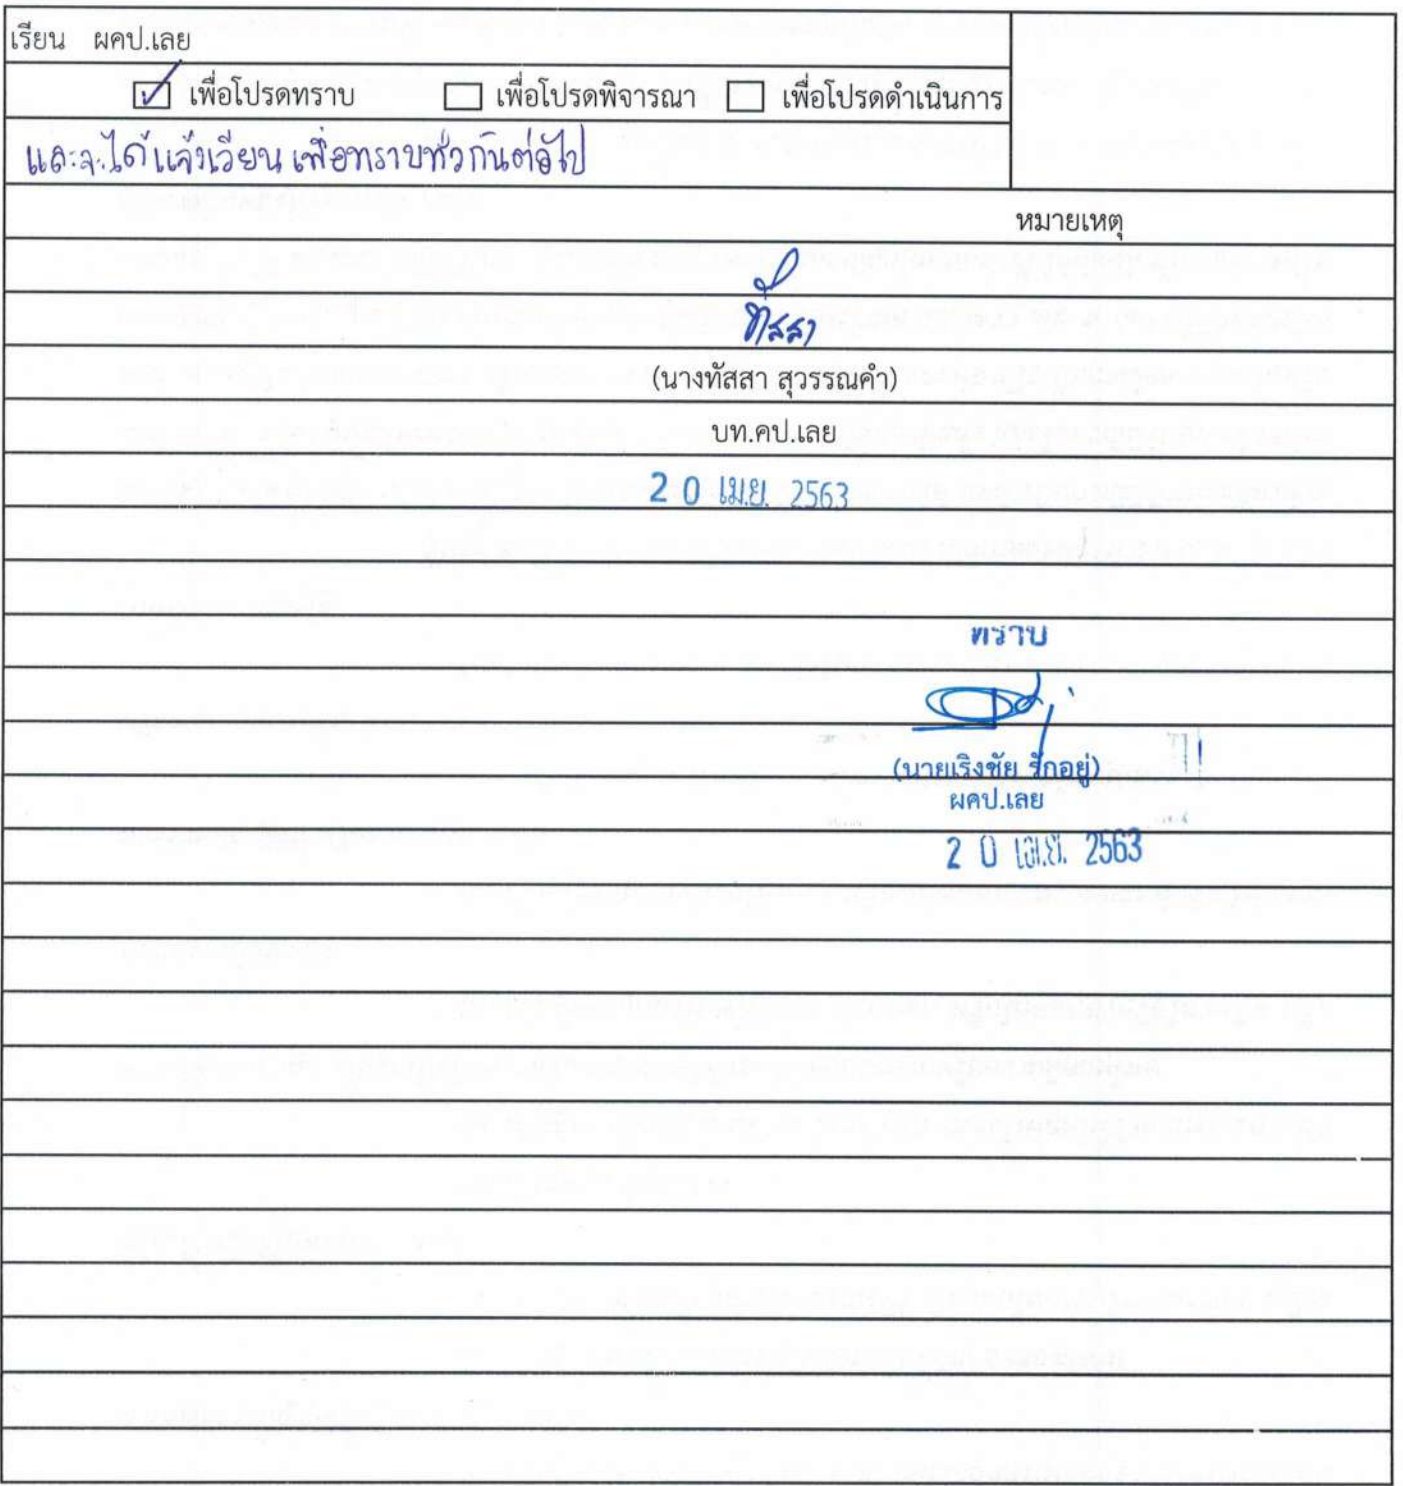 เรียน ผคป.เลย
เพื่อโปรดทราบ เพื่อโปรดพิจารณา เพื่อโปรดดำเนินการ
และจะได้แจ้งเวียน เพื่อทราบทั่วกันต่อไป
หมายเหตุ
ทัสสา
(นางทัสสา สุวรรณคำ)
บท.คป.เลย
20 เม.ย. 2563
ทราบ
(นายเริงชัย รักอยู่)
ผคป.เลย
20 เม.ย. 2563